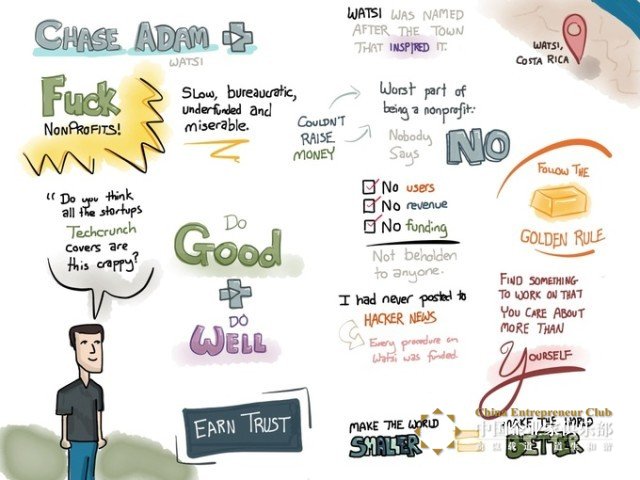 CHASE ADAM
WATSI
Fuck
NONPROFITS!
SLOW, bureaucratic,
underfunded and
miserable.
"Do you think
all the startups
Techcrunch
covers are
this crappy?
Do
Good
Do
Well
EARN TRUST
WATSI WAS NAMED
AFTER THE TOWN
THAT INSPIRED IT.
WATSI,
COSTA RICA
COULDN'T
RAISE
MONEY
Worst part of
being a nonprofit:
Nobody
Says
NO
No users
No revenue
No funding
Not beholden
to anyone.
I had never posted to
HACKER NEWS
Every procedure on
Watsi was funded.
FOLLOW THE
GOLDEN RULE
FIND SOMETHING
TO WORK ON THAT
YOU CARE ABOUT
MORE THAN
YOURSELF
MAKE THE WORLD
SMALLER
=
MAKE THE WORLD
BETTER
China Entrepreneur Club
中国企业家俱乐部